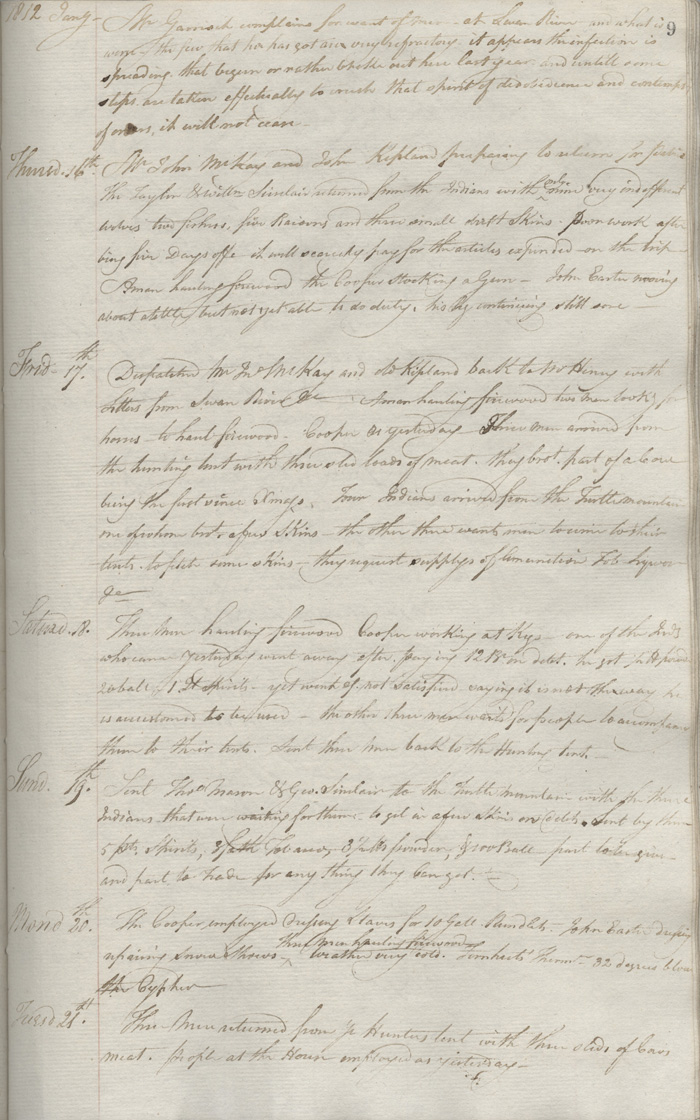 1812 Jany - Mr Garrioch complains for want of men - at Swan River - and what is 9
worse - the few that he has got are very refractory. it appears the infection is
spreading, that began or rather broke out here last year - and untill some
steps are taken effectually to crush that spirit of disobedience and contempt
of orders, it will not cease -
Thursd. 16th. Mr. John McKay and John Kipland preparing to return for
Thos Taylor & Willm Sinclair returned from the Indians with only nine very indifferent
wolves two fishers, five Racoons and three small drest Skins. Poor work after
being five Days off - it will scarcely pay for the articles expended on the trip
A man hauling firewood the Cooper stocking a Gun - John Easter moving
about a little but not yet able to do duty. his leg continuing still sore -
Frid- 17.th Dispatched Mr. Jno McKay and Kipland back to with
letters from Swan River &c A man hauling firewood two men looking for
horses to haul firewood - Cooper as yesterday Three men arrived from
the hunting tent with three sled loads of meat. they brot. part of a Cow
being the first since Xmas. Four Indians arrived from the Turtle mountain
one of whom brot. a few Skins - the other three wants men to come to their
tents to fetch some skins - they request supplys of Amunition Tob. Liquor
&c
Saturd. 18. Three Men hauling firewood Cooper working at Kegs - one of the Inds
who came yesterday went away after paying 12 Br on debt. he got
20 ball, 1 Qt Spirits - yet went of not Satisfied. saying it is not the way he
is accustomed to be used - the other three men waits for people to accompany
them to their tents. Sent three Men back to the Hunting tent. -
Sund. 19.th Sent Thos Mason & Geo. Sinclair to the Turtle Mountain with the three
Indians that were waiting for them, to get in a few Skins on debt. Sent by them
5 pts. Spirits, 3 fath Tobacco, lbs powder, & 100 Ball part to be given
and part to trade for any thing they can get. -
Mond 20.th The Cooper employed dressing Staves for 10 Gall. Rundlets. John Easter
repairing Snow Shoes - Three Men hauling firewood weather very cold. Therm. 32 degrees below
the Cypher
Tuesd 21st. Three Men returned from ye Hunters tent with three sleds of Cows
meat. people at the House employed as yesterday -